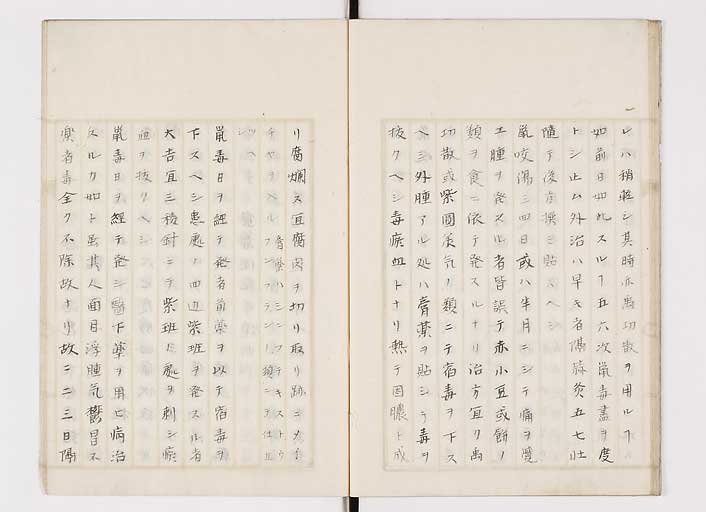 レハ稍軽シ其時亦禹功散ヲ用ルヿ
如前日如此スルヿ五六次鼠毒盡ヲ度
トシ止ム外治ハ早キ者隔蒜灸五七壮
隨テ後膏ヲ貼スヘシ
鼠咬傷三四日或ハ半月ニシテ痛ヲ覚
エ腫ヲ発スル者皆誤テ赤小豆或餅ノ
類ヲ食ニ依テ発スルナリ治方宜ク禹
功散或紫圓ノ類ニテ宿毒ヲ下ス
ヘシ外腫アル処ハ膏薬ヲ貼シテ毒ヲ
抜クヘシ毒瘀血トナリ熱テ固膿ト成
リ腐爛ス宜腐肉ヲ切リ取リ跡ニメイ
チヤヲヘル
鼠毒日ヲ経テ発者前薬ヲ以テ宿毒ヲ
下スヘシ患処ノ四辺紫斑ヲ発スル者
大吉宜三稜針ニテ紫班ノ処ヲ刺シ瘀
血ヲ抜クヘシ
鼠毒日ヲ経テ発シ醫下薬ヲ用ヒ病治
スルノ如ト雖其人面目浮腫気鬱冒不
楽者毒全ク不除故ナリ故ニ二三日隔